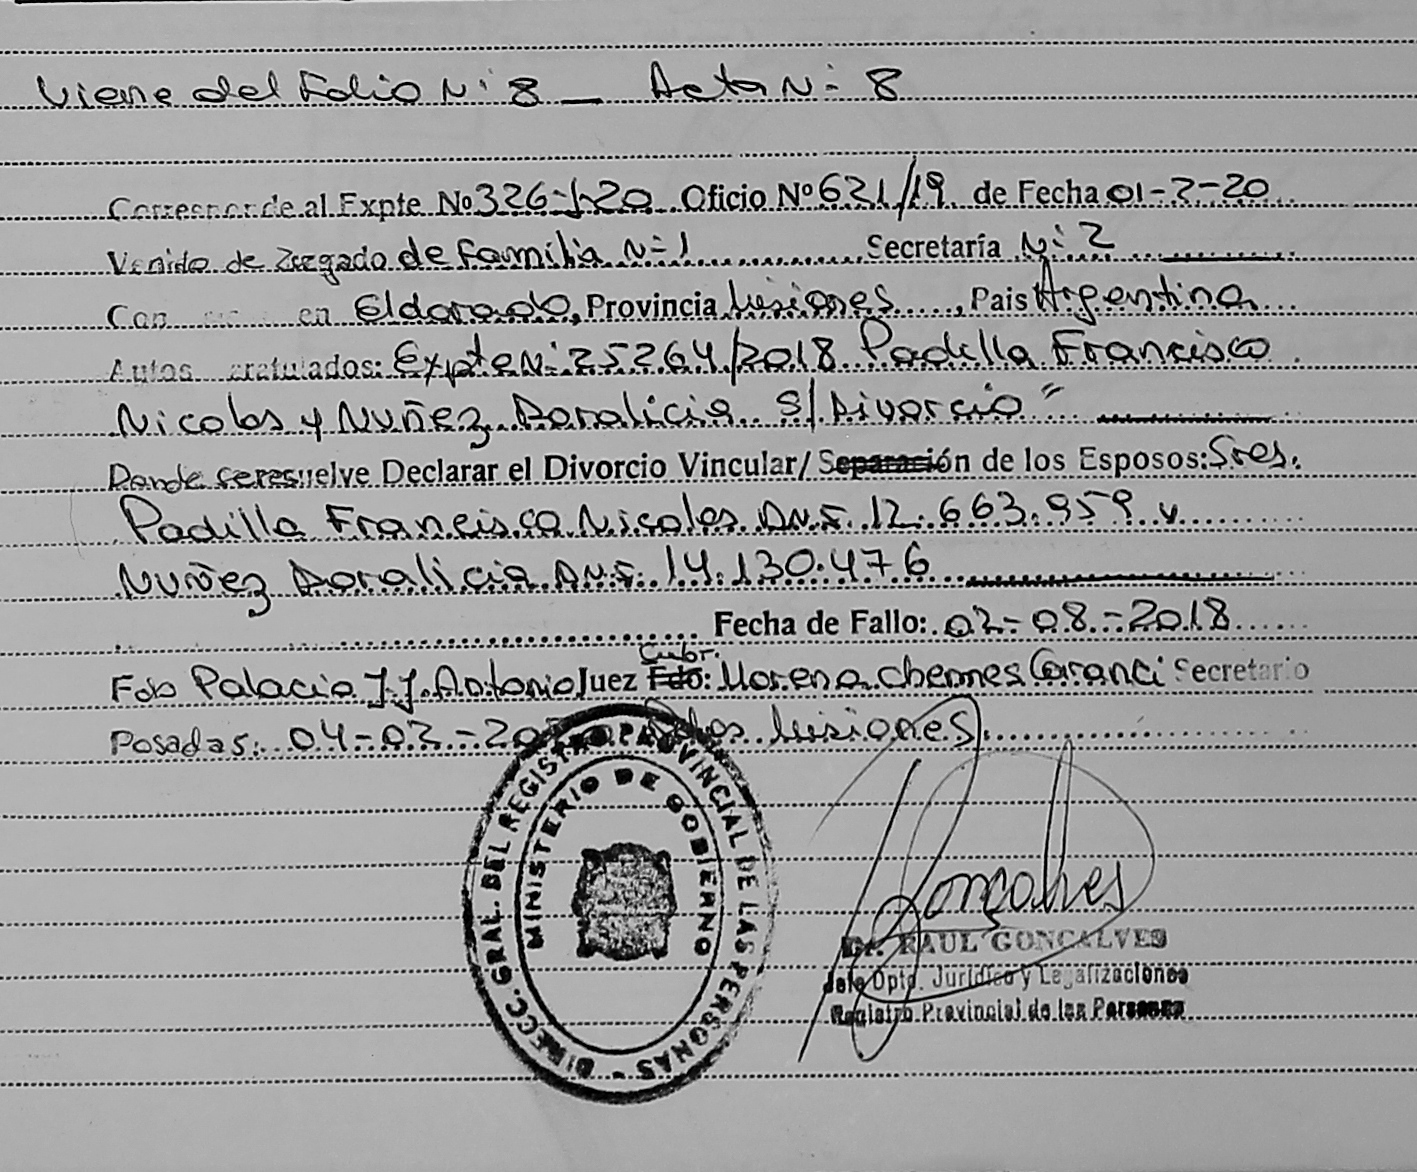 Viene del Folio N: 8 — Acta N: 8
Corresponde al Expte Nº 326-J-20 Oficio Nº 621/19 de Fecha 01-2-20
Venido de Juzgado de Familia N: 1 Secretaría N: 2
Con en Eldorado, Provincia Misiones, Pais Argentina
Autos caratulados: Expte N: 25264/2018 Padilla Francisco
Nicolas y Nuñez Doralicia S/Divorcio"
Donde se resuelve Declarar el Divorcio Vincular/ Separación de los Esposos: Sres.
Padilla Francisco Nicolas DNI. 12.663.959 y
Nuñez Doralicia DNI. 14.130.476
Fecha de Fallo: 02-08-2018
Cubr.
Fdo Palacio J J. Antonio Juez Fdo: Morena Chemes Caranci Secretario
Posadas: 04-02-20 Misiones
DIRECC. GRAL. DEL REGISTRO PROVINCIAL DE LAS PERSONAS -
MINISTERIO DE GOBIERNO
Gonçalves
Dr. RAUL GONCALVES
Jefe Dpto. Jurídico y Legalizaciones
Registro Provincial de las Personas